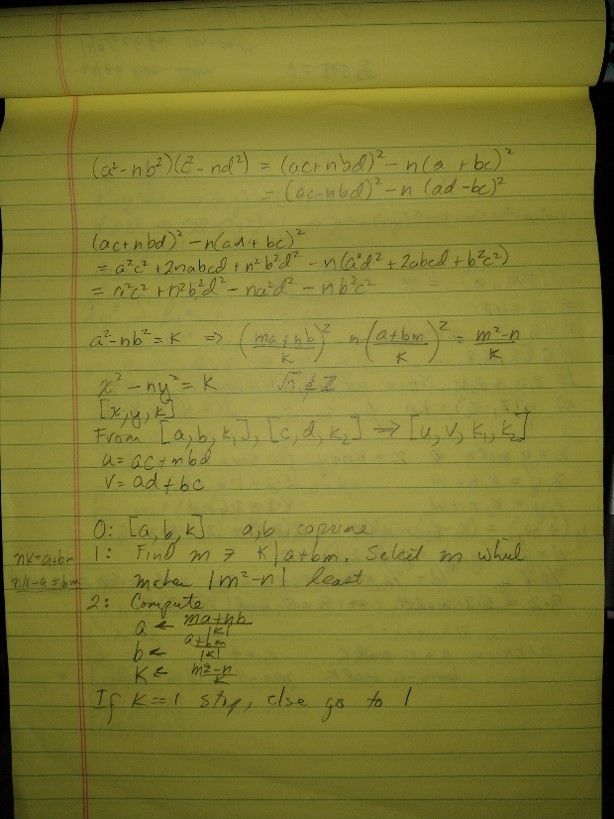 (a²-nb²)(c²-nd²) = (ac+nbd)² - n(a + bc)²
= (ac-nbd)² - n (ad-bc)²
(ac+nbd)² - n(ad+bc)²
= a²c² + 2nabcd + n²b²d² - n(a²d² + 2abcd + b²c²)
= a²c² + n²b²d² - na²d² - nb²c²
a²-nb² = K ⇒ ((ma+nb)/K)² - n((a+bm)/K)² = (m²-n)/K
x² - ny² = K √n ∉ ℤ
[x,y,K]
From [a,b,K₁], [c,d,K₂] ⇒ [u,v,K₁,K₂]
u = ac+nbd
v = ad+bc
0: [a,b,K] a,b coprime
nk=a+bm
1: Find m ∋ K|a+bm. Select m which
nk-a=bm
makes |m²-n| least
2: Compute
a ← (ma+nb)/|K|
b ← (a+bm)/|K|
K ← (m²-n)/K
If K=1 stop, else go to 1